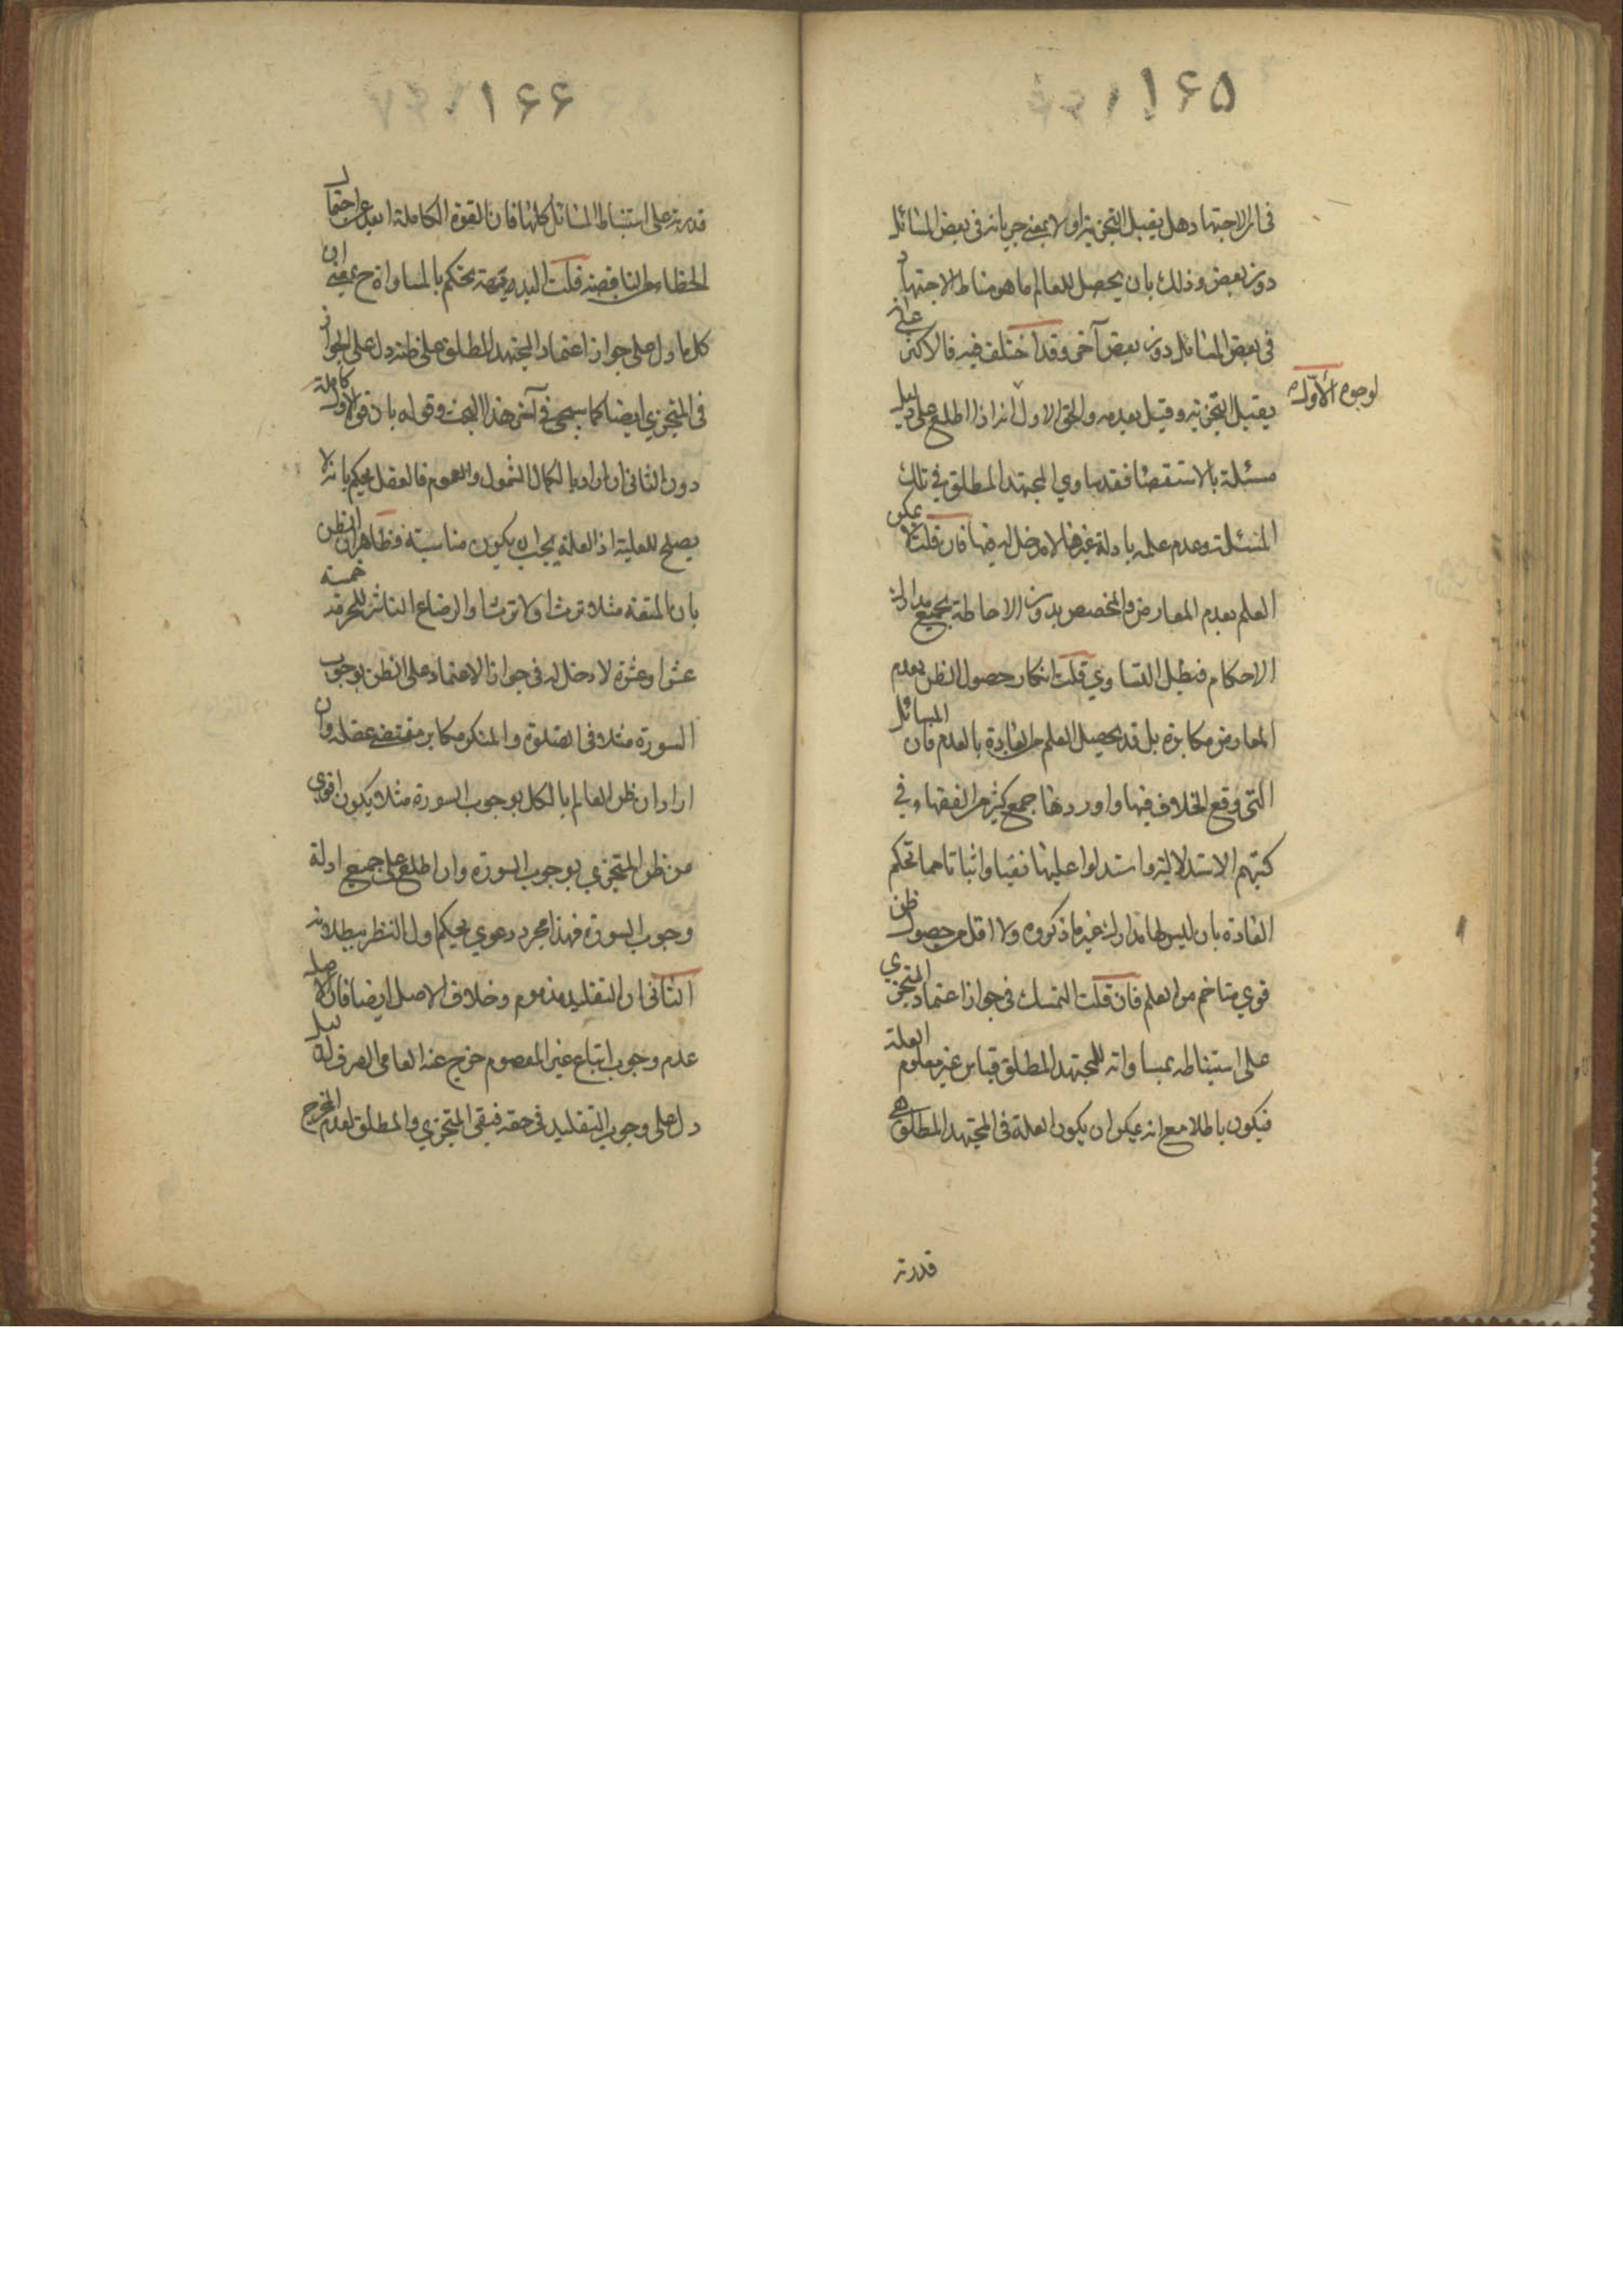 ١۶۵
فى ان الاجتهاد هل يقبل التجزية او لا بمعنى جريانه فى بعض المسائل
دون بعض و ذلك بان يحصل للعالم ما هو مناط الاجتهاد
فى بعض المسائل دون بعض آخر و قد اختلف فيه فالاكثر على انه
يقبل التجزية و قيل بعدمه و الحق الاول لوجوه الأوّل انه اذا اطلع على دليل
مسئلة بالاستقصا فقد ساوى المجتهد المطلق في تلك
المسئلة و عدم علمه بادلة غيرها لا مدخل له فيها فان قلت لا يمكن
العلم بعدم المعارض و المخصص بدون الاحاطة بجميع مدارك
الاحكام فبطل التساوي قلت انكار حصول الظن بعدم
المعارض مكابرة بل قد يحصل العلم من العادة بالعدم فان المسائل
التى وقع الخلاف فيها و اوردها جمع كثير من الفقهاء في
كتبهم الاستدلالية و استدلوا عليها نفيا و اثباتا مما تحكم
العادة بان ليس لها مدارك غير ما ذكروه و لا اقل من حصول ظن
قوي متاخم من العلم فان قلت التمسك فى جواز اعتماد المتجزي
على استنباطه بمساواته للمجتهد المطلق قياس غير معلوم العلة
فيكون باطلا مع انه يمكن ان يكون العلة فى المجتهد المطلق هى
قدرته
١۶۶
قدرته على استنباط المسائل كلها فان القوة الكاملة ابعد عن احتمال
الخطا من الناقصة قلت البديهة تحكم بالمساواة ح بمعنى ان
كل ما دل على جواز اعتماد المجتهد المطلق على ظنه دل على الجواز
فى المتجزي ايضا كما سيجئ في آخر هذا البحث و قوله بان قوة الاول كاملة
دون الثانى ان اراد بالكمال الشمول و العموم فالعقل يحكم بانه لا
يصلح للعلية اذ العلة يجب ان يكون مناسبة فظاهر ان الظن
بان المتعة مثلا ترث او لا ترث او الرضاع الناشر للحرمة خمسة
عشر او عشرة لا دخل له فى جواز الاعتماد على الظن بوجوب
السورة مثلا فى الصلوة و المنكر مكابر مقتضى عقله و ان
اراد ان ظن العالم بالكل بوجوب السورة مثلا يكون اقوى
من ظن المتجزي بوجوب السورة و ان اطلع على جميع ادلة
وجوب السورة فهذا مجرد دعوي يحكم اول النظر ببطلانه
الثانى ان التقليد مذموم و خلاف الاصل ايضا فان الاصل
عدم وجوب اتباع غير المعصوم خرج عنه العامى الصرف لدليل
دل على وجوب التقليد فى حقه فبقى المتجزي و المطلق لعدم المخرج